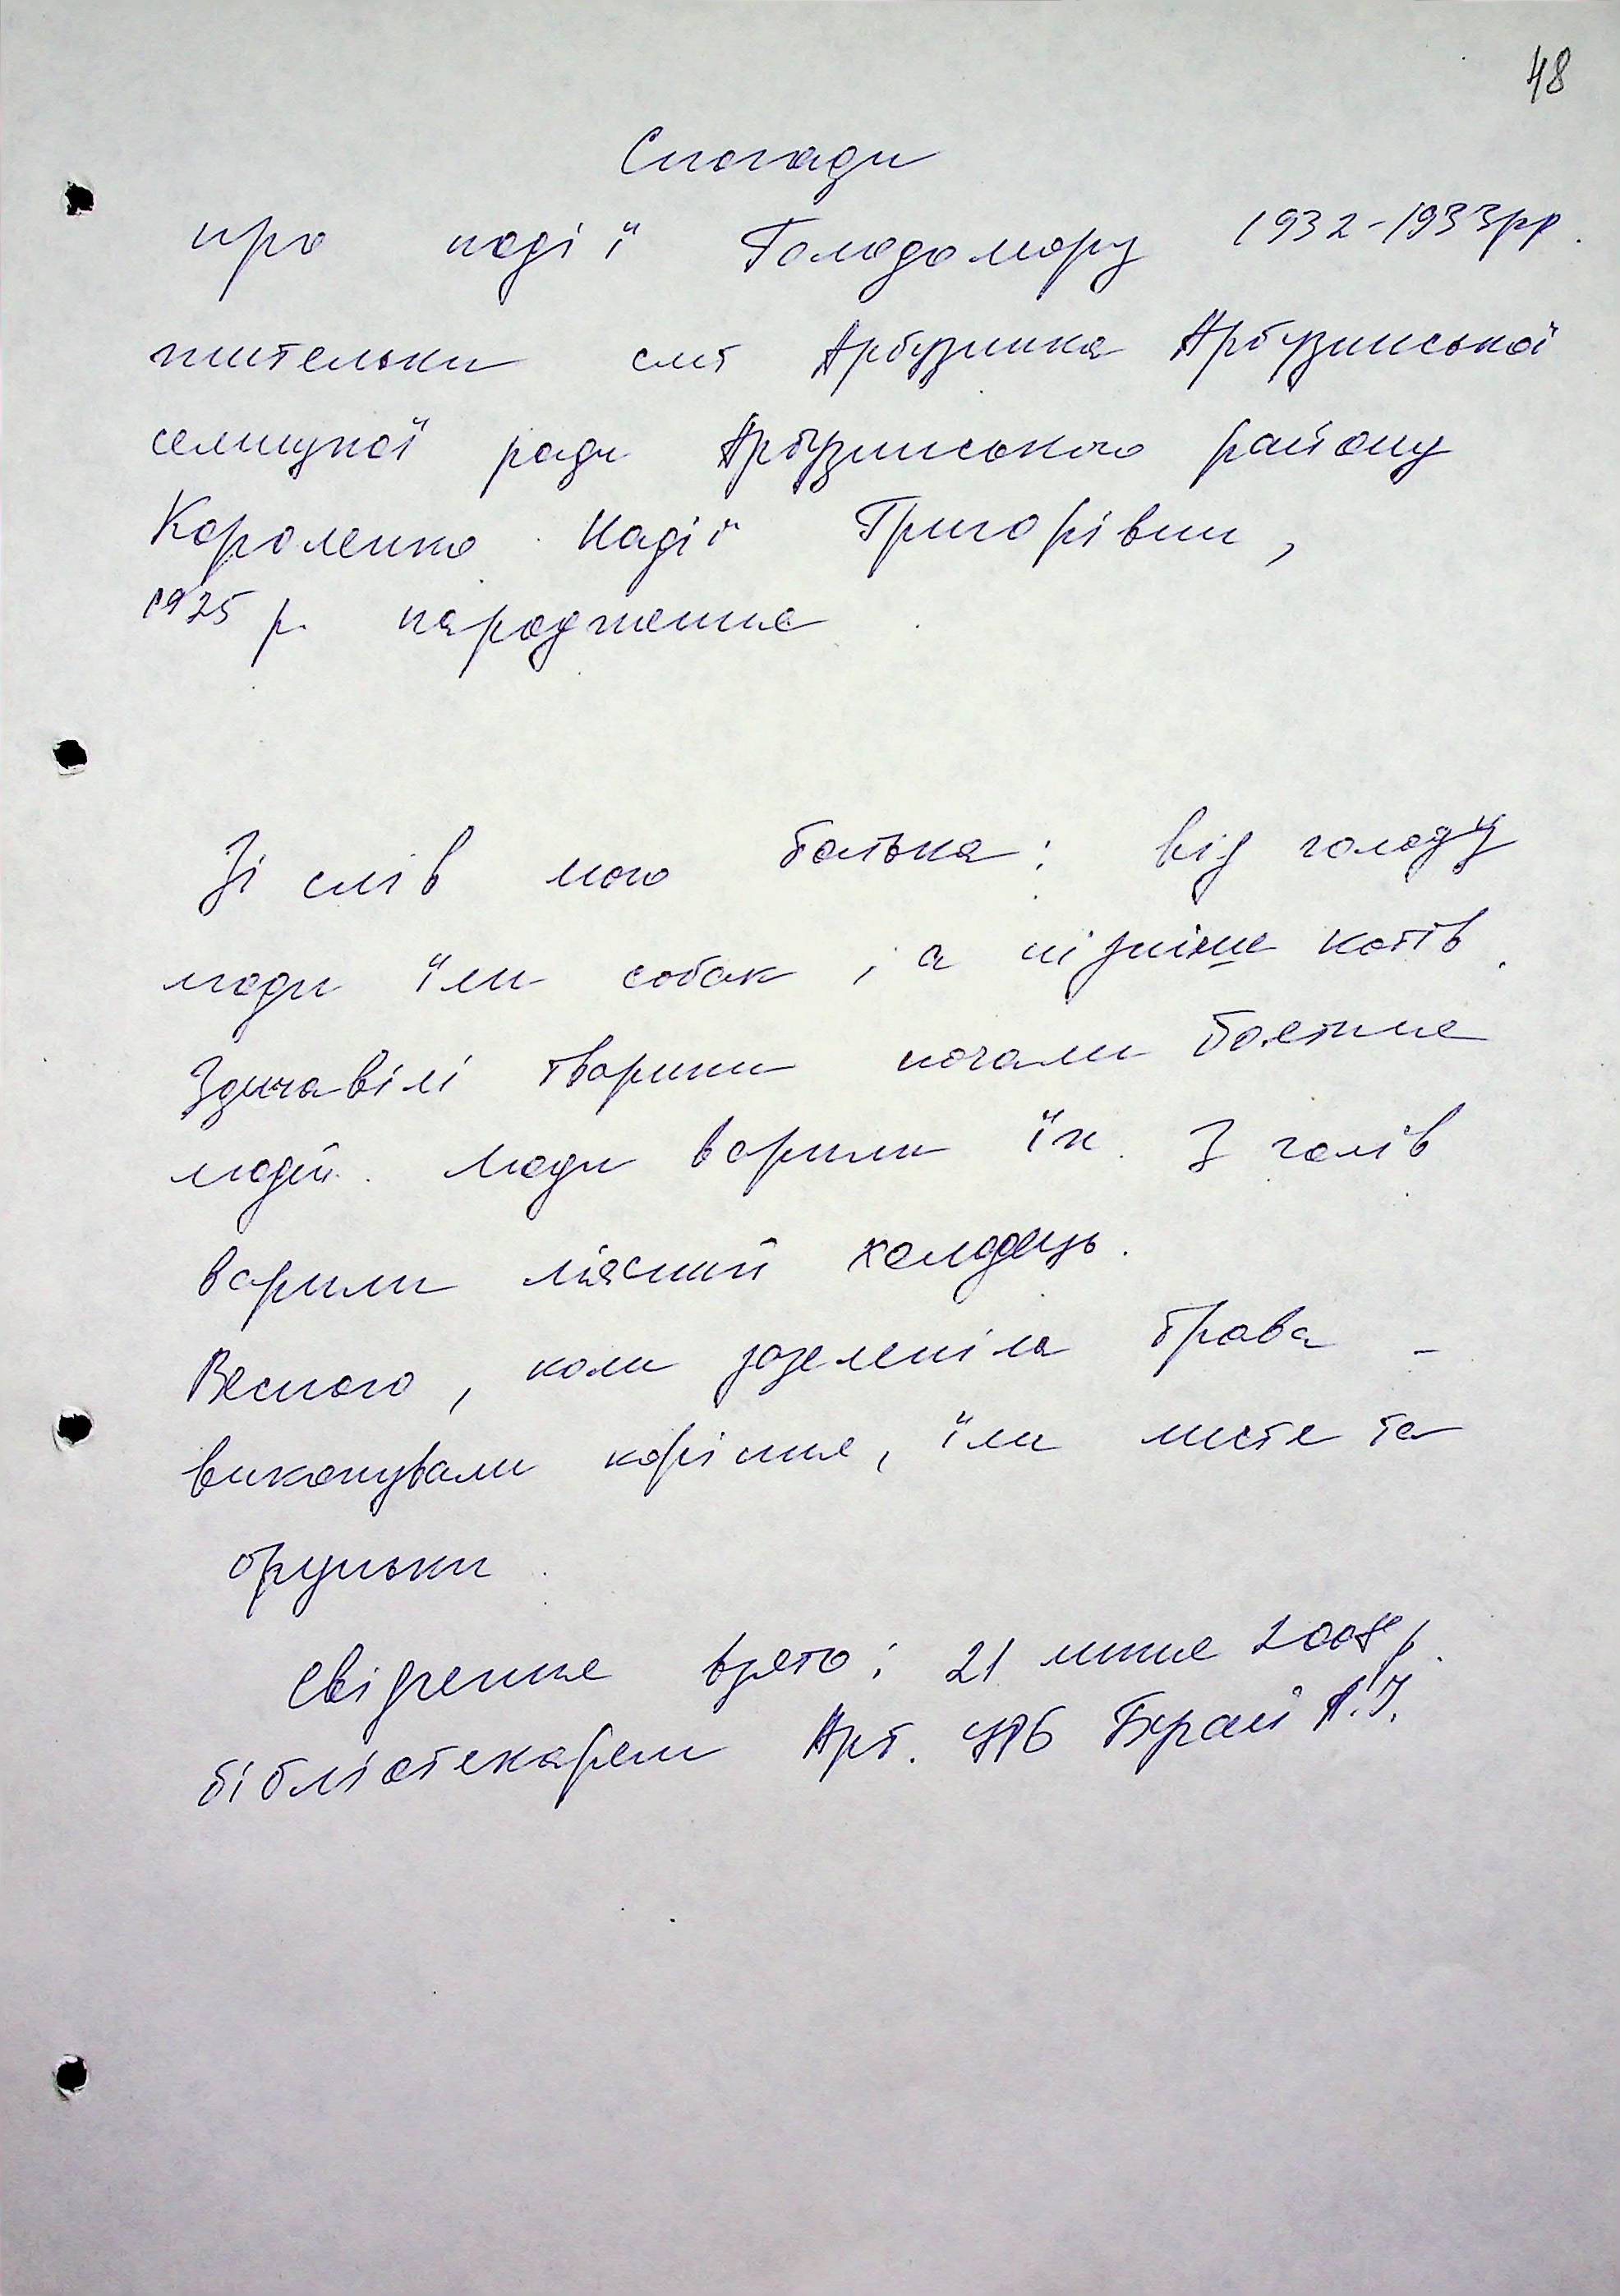 48
Спогади
про події Голодомору 1932-1933рр.
жительки смт Арбузинка Арбузинської
селищної ради Арбузинського району
Короленко Надії Григорівни,
1925 р. народження
Зі слів мого батька: від голоду
люди їли собак, а пізніше котів.
Здичавілі тварини почали боятися
людей. Люди варили їх. З голів
варили м'ясний холодець.
Весною, коли зазеленіла трава -
викопували коріння, їли листя та
бруньки.
Свідчення взято: 21 липня 2008р.
бібліотекарем Арб. ЦРБ А.І.